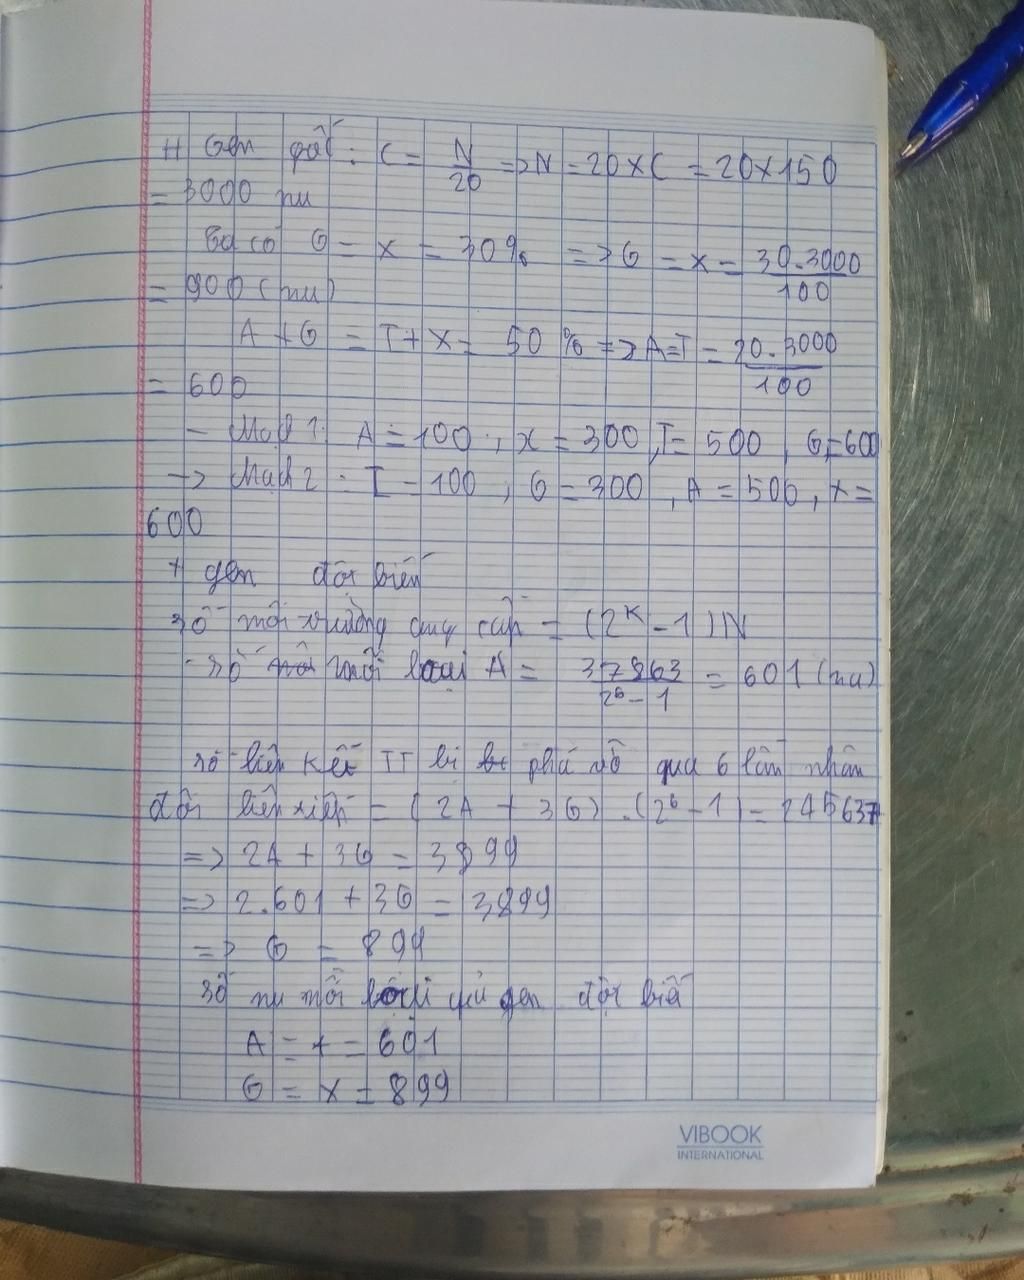 + Gen gốc: C = N/20 => N = 20 x C = 20 x 150
= 3000 nu
Ta có G = X = 30% => G = X = 30.3000/100
= 900 (nu)
A + G = T + X = 50% => A=T = 20.3000/100
= 600
- Mạch 1: A = 100, X = 300, T = 500, G = 600
-> Mạch 2: T = 100, G = 300, A = 500, X =
600
+ gen đột biến
số môi trường cung cấp = (2^k - 1)N
- số mỗi loại A = 37863/2^6 - 1 = 601 (nu)
số liên kết bị phá vỡ qua 6 lần nhân
đôi liên tiếp = (2A + 3G).(2^6 - 1) = 245637
=> 2A + 3G = 3899
=> 2.601 + 3G = 3899
=> G = 899
số nu mỗi loại của gen đột biến
A = T = 601
G = X = 899
VIBOOK
INTERNATIONAL